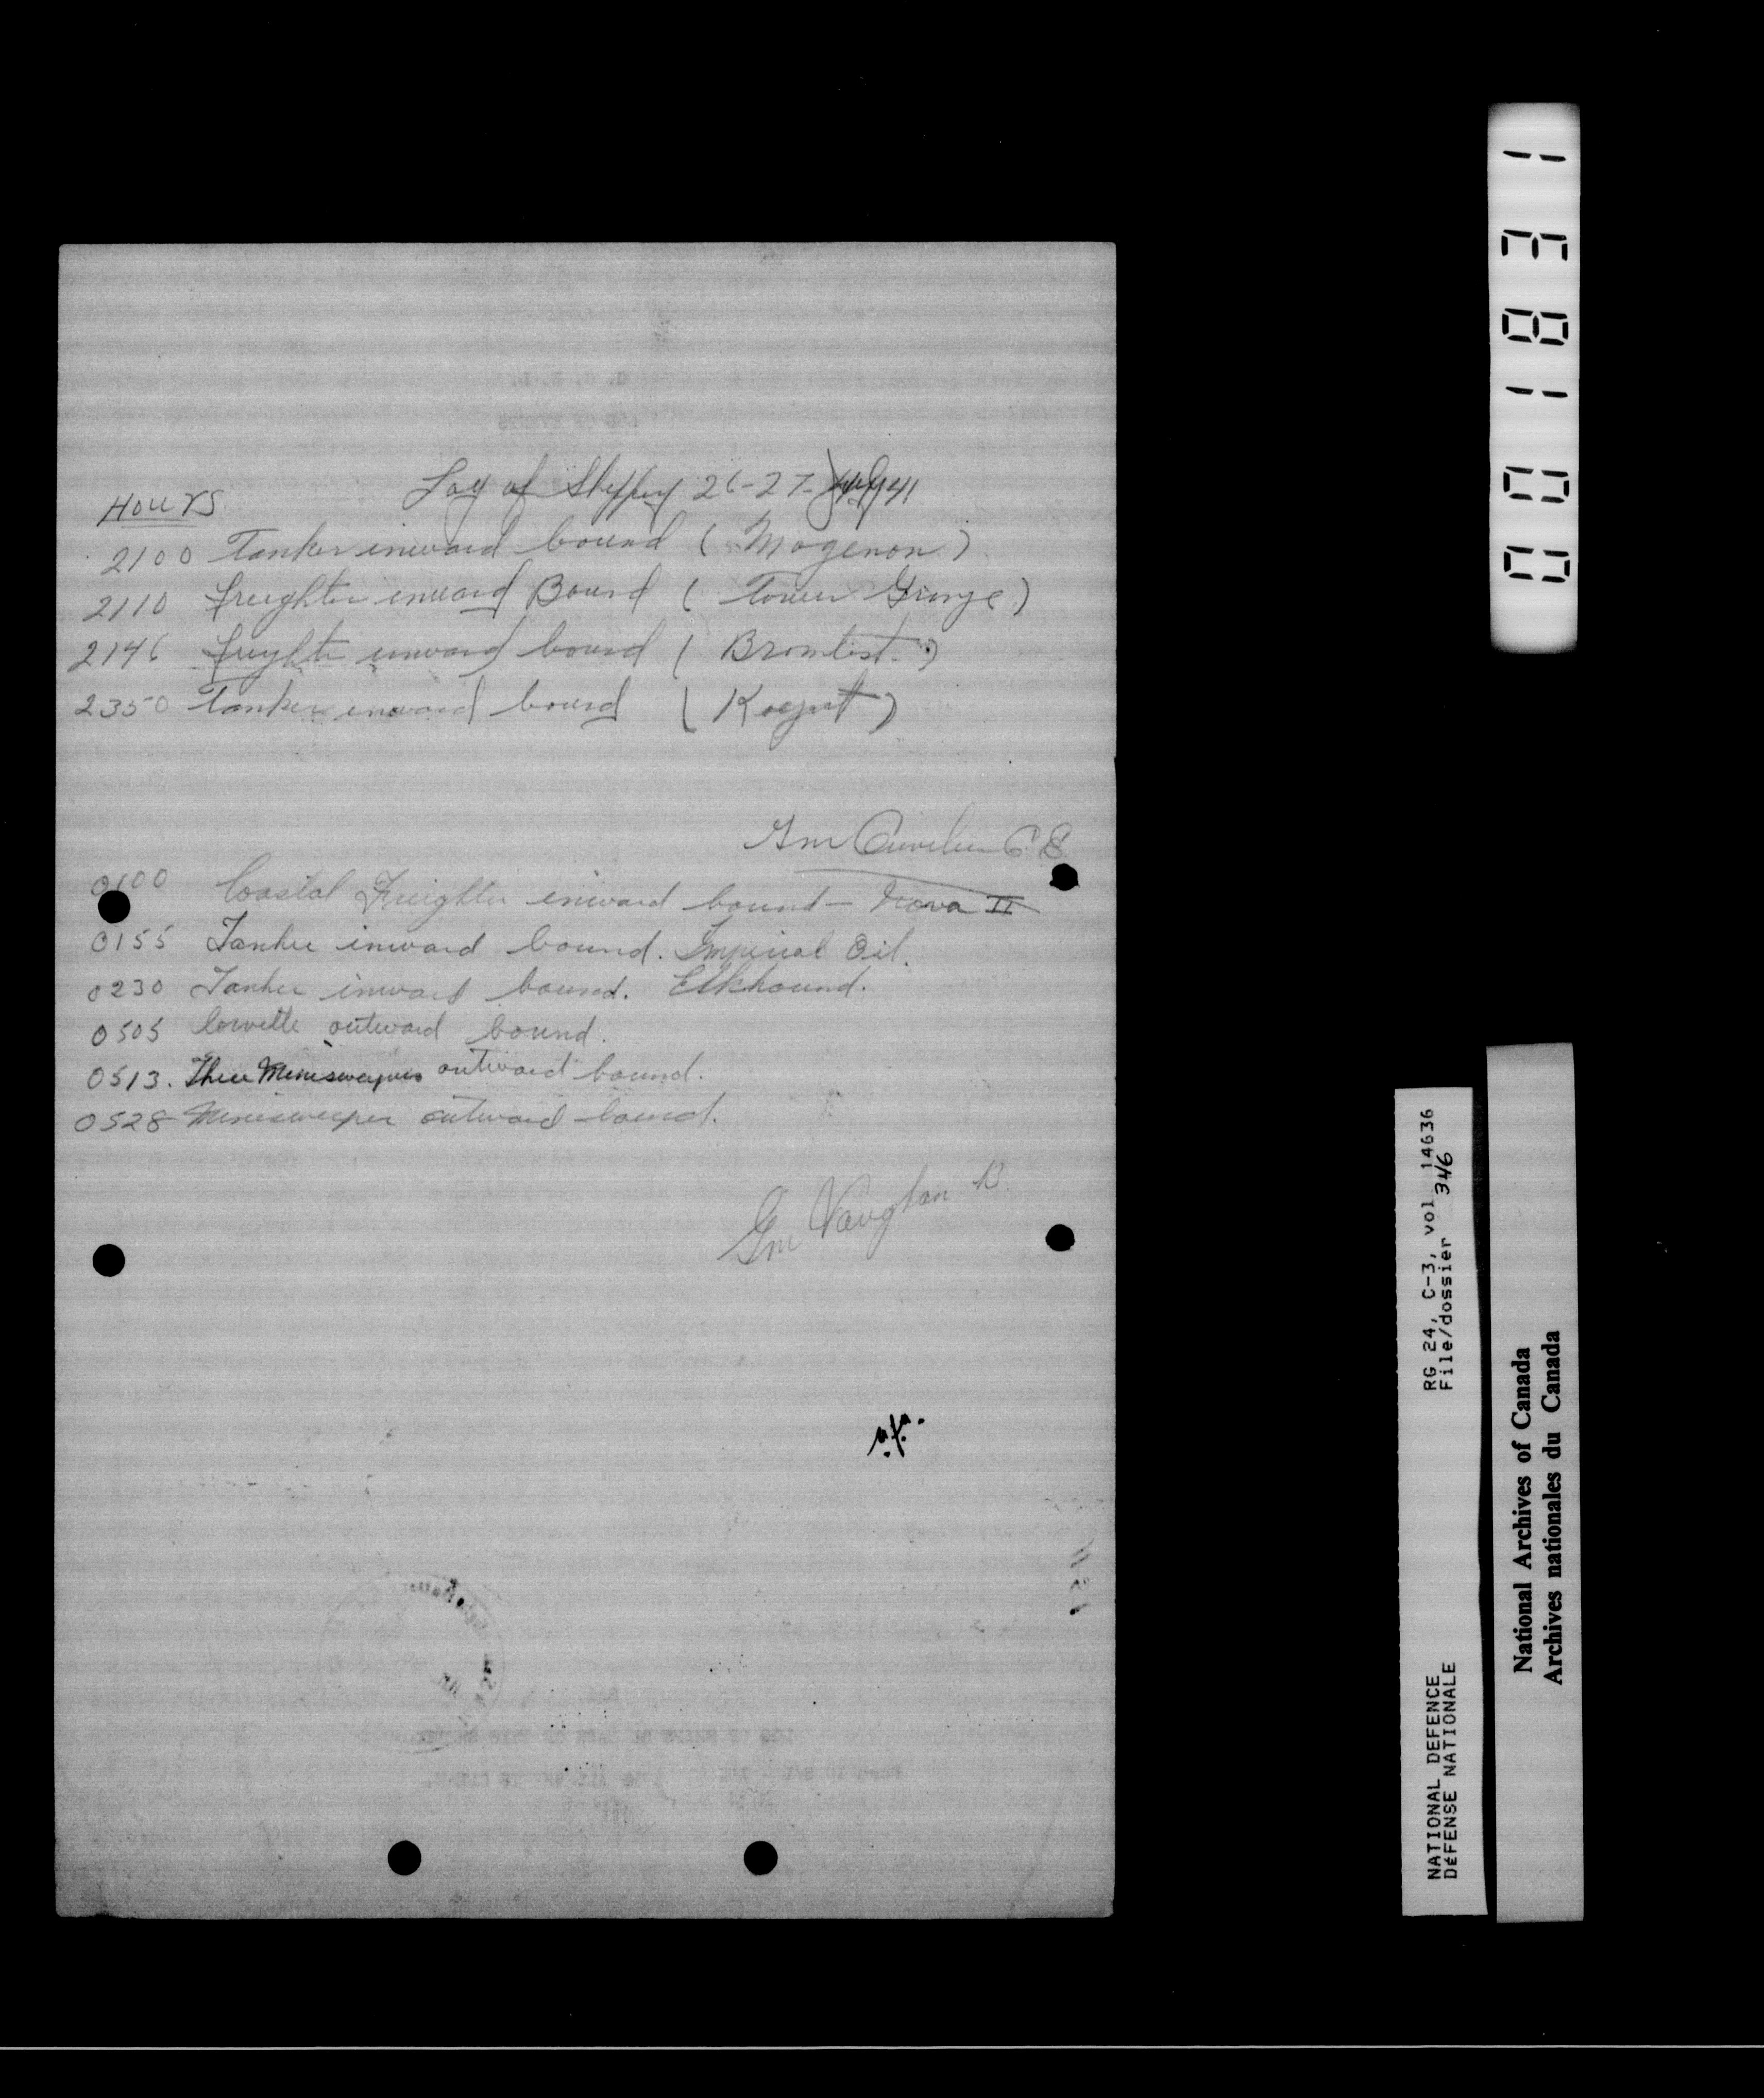 Log of Shipping 26-27- July/41
HOURS
2100 Tanker inward bound ( Mogenon )
2110 freighter inward Bound ( Tower Grange )
2146 freighter inward bound ( )
2350 Tanker inward bound ( )
Gnr
0100 Coastal Freighter inward bound - Nova II
0155 Tanker inward bound. Imperial Oil.
0230 Tanker inward bound. Elkhound.
0505 Corvette outward bound.
0513. Three Minesweepers outward bound.
0528 Minesweeper outward bound.
Gnr Vaughan
001831
RG 24, C-3, vol 14636
File/dossier 346
NATIONAL DEFENCE
DÉFENSE NATIONALE
National Archives of Canada
Archives nationales du Canada